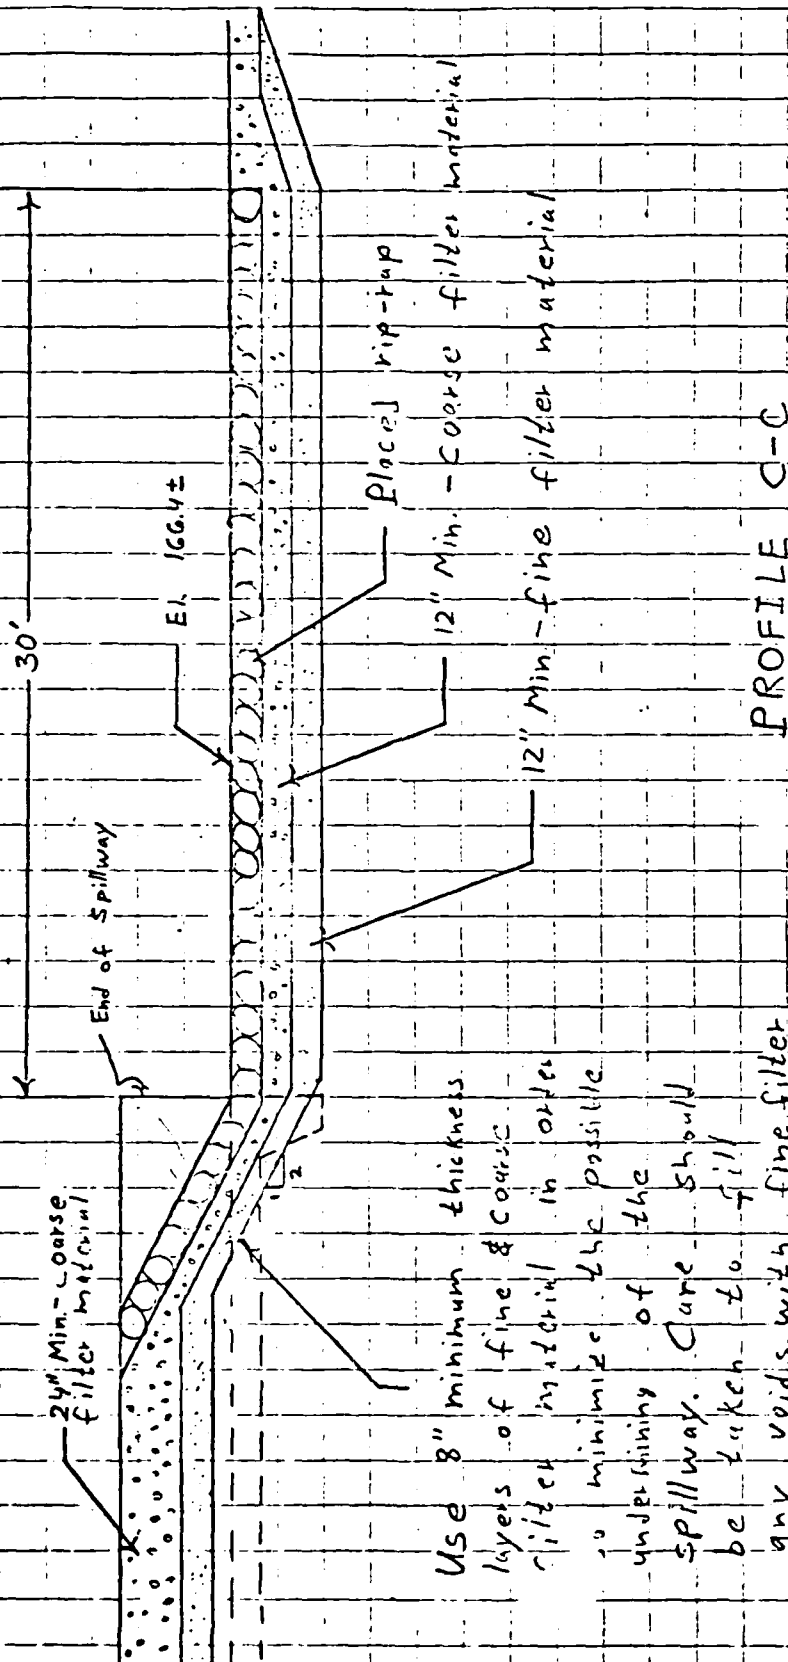 30'
El. 166.4±
End of Spillway
24" Min.-coarse
filter material
Placed rip-rap
12" Min.-coarse filter material
12" Min-fine filter material
1
2
Use 8" minimum thickness
layers of fine & coarse
filter material in order
to minimize the possible
undermining of the
spillway. Care should
be taken to fill
any voids with fine filter
PROFILE C-C